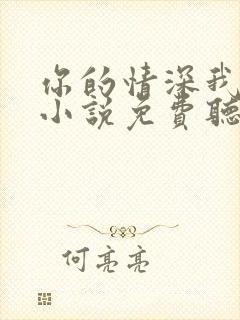 你的情深我
小說免費聽
何亮亮